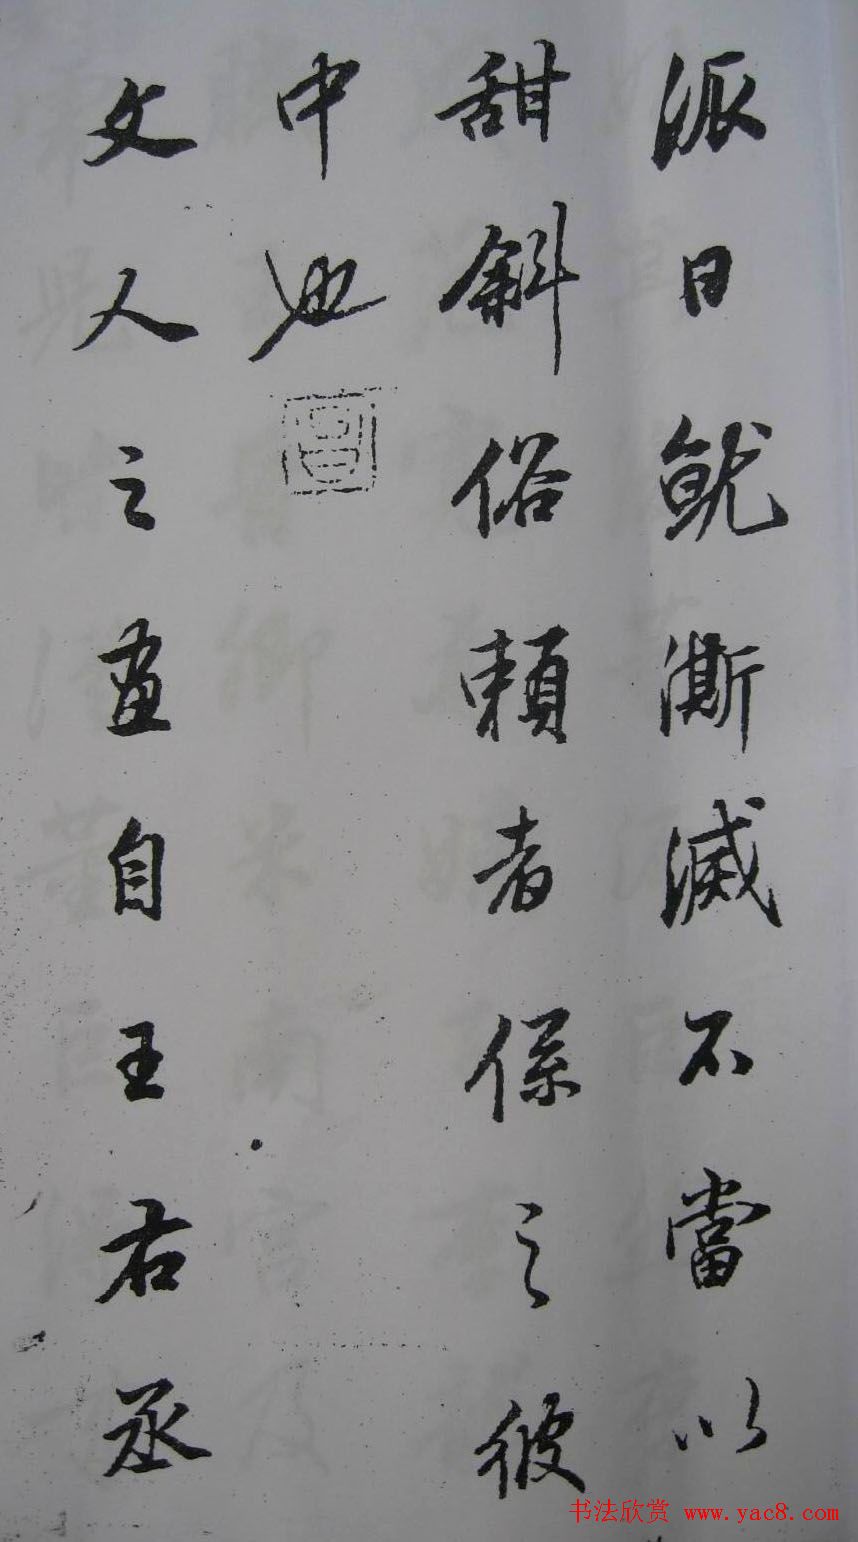 派日就澌滅不當以
甜斜俗頼者係之彼
中也
文人之畫自王右丞
书法欣赏 www.yac8.com